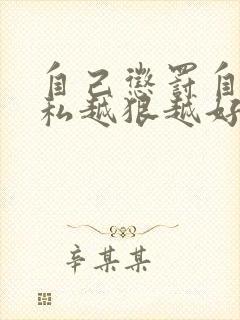 自己惩罚自
私越狠越好
辛某某